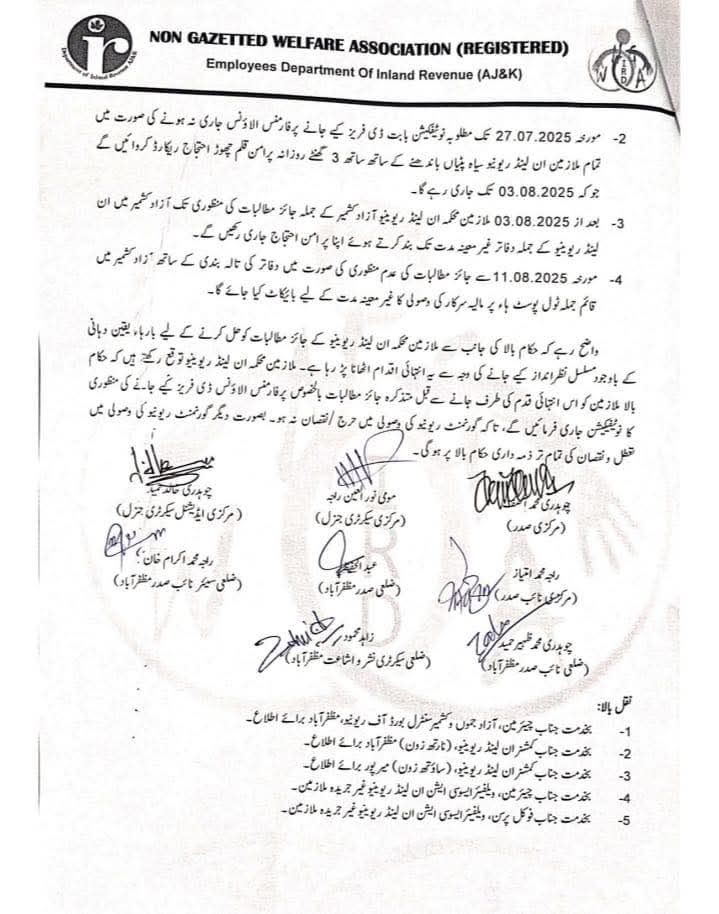 NON GAZETTED WELFARE ASSOCIATION (REGISTERED)
Employees Department Of Inland Revenue (AJ&K)
2- مورخہ 27.07.2025 تک مطلوبہ نوٹیفکیشن بابت ڈی فریز کیے جانے پرفارمنس الاؤنس جاری نہ ہونے کی صورت میں
تمام ملازمین ان لینڈ ریونیو سیاہ پٹیاں باندھنے کے ساتھ ساتھ 3 گھنٹے روزانہ پرامن قلم چھوڑ احتجاج ریکارڈ کروائیں گے
جو کہ 03.08.2025 تک جاری رہے گا۔
3- بعد از 03.08.2025 ملازمین محکمہ ان لینڈ ریوینیو آزاد کشمیر کے جملہ جائز مطالبات کی منظوری تک آزاد کشمیر میں ان
لینڈ ریوینیو کے جملہ دفاتر غیر معینہ مدت تک بند کرتے ہوئے اپنا پر امن احتجاج جاری رکھیں گے۔
4- مورخہ 11.08.2025 سے جائز مطالبات کی عدم منظوری کی صورت میں دفاتر کی تالہ بندی کے ساتھ آزاد کشمیر میں
قائم جملہ ٹول پوسٹ ہاء پر مالیہ سرکار کی وصولی کا غیر معینہ مدت کے لیے بائیکاٹ کیا جائے گا۔
واضح رہے کہ حکام بالا کی جانب سے ملازمین محکمہ ان لینڈ ریوینیو کے جائز مطالبات کو حل کرنے کے لیے بارہاء یقین دہانی
کے باوجود مسلسل نظر انداز کیے جانے کی وجہ سے یہ انتہائی اقدام اٹھانا پڑ رہا ہے۔ ملازمین محکمہ ان لینڈ ریوینیو توقع رکھتے ہیں کہ حکام
بالا ملازمین کو اس انتہائی قدم کی طرف جانے سے قبل متذکرہ جائز مطالبات بالخصوص پرفارمنس الاؤنس ڈی فریز کیے جانے کی منظوری
کا نوٹیفکیشن جاری فرمائیں گے، تاکہ گورنمنٹ ریونیو کی وصولی میں حرج / نقصان نہ ہو۔ بصورت دیگر گورنمنٹ ریونیو کی وصولی میں
تعطل و نقصان کی تمام تر ذمہ داری حکام بالا پر ہوگی۔
چوہدری محمد
موسیٰ نور العین راجہ
چوہدری خالد
(مرکزی صدر)
(مرکزی سیکرٹری جنرل)
(مرکزی ایڈیشنل سیکرٹری جنرل)
راجہ محمد امتیاز
عبد الحفیظ
راجہ محمد اکرام خان
(مرکزی نائب صدر)
(ضلعی صدر مظفرآباد)
(ضلعی سینئر نائب صدر مظفرآباد)
چوہدری محمد ظہیر حمید
زاہد محمود
(ضلعی نائب صدر مظفرآباد)
(ضلعی سیکرٹری نشر و اشاعت مظفرآباد)
نقل بالا:
1- بخدمت جناب چیئرمین، آزاد جموں و کشمیر سنٹرل بورڈ آف ریونیو، مظفرآباد برائے اطلاع۔
2- بخدمت جناب کمشنر ان لینڈ ریوینیو، (نارتھ زون) مظفرآباد برائے اطلاع۔
3- بخدمت جناب کمشنر ان لینڈ ریوینیو، (ساؤتھ زون) میرپور برائے اطلاع۔
4- بخدمت جناب چیئرمین، ویلفیئر ایسوسی ایشن ان لینڈ ریوینیو غیر جریدہ ملازمین۔
5- بخدمت جناب فوکل پرسن، ویلفیئر ایسوسی ایشن ان لینڈ ریوینیو غیر جریدہ ملازمین۔